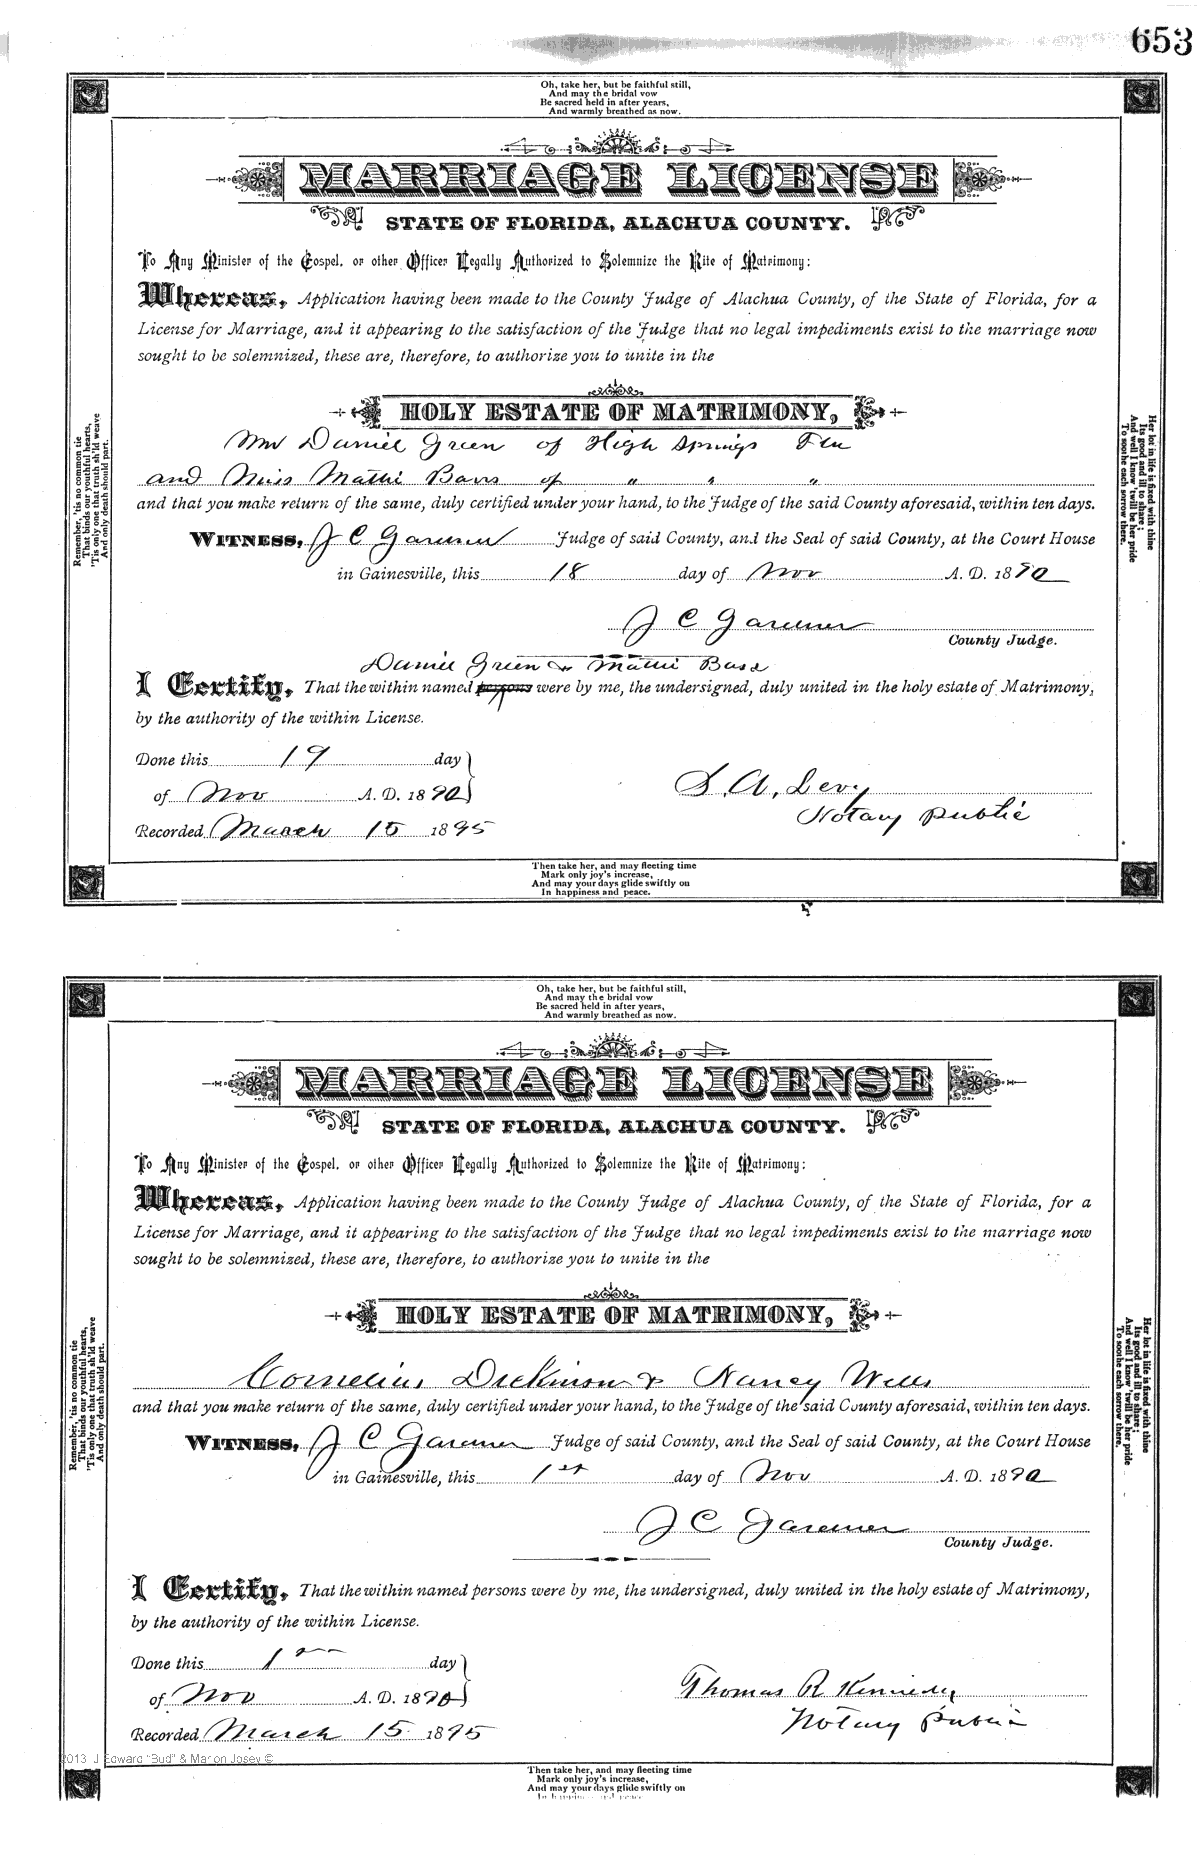 653
Oh, take her, but be faithful still,
And may the bridal vow
Be sacred held in after years,
And warmly breathed as now.
MARRIAGE LICENSE
STATE OF FLORIDA, ALACHUA COUNTY.
To Any Minister of the Gospel, or other Officer Legally Authorized to Solemnize the Rite of Matrimony:
Whereas, Application having been made to the County Judge of Alachua County, of the State of Florida, for a
License for Marriage, and it appearing to the satisfaction of the Judge that no legal impediments exist to the marriage now
sought to be solemnized, these are, therefore, to authorize you to unite in the
HOLY ESTATE OF MATRIMONY,
Mr Daniel Green of High Springs Fla
and Miss Mattie Bass of " " "
and that you make return of the same, duly certified under your hand, to the Judge of the said County aforesaid, within ten days.
WITNESS, J C Gardner Judge of said County, and the Seal of said County, at the Court House
in Gainesville, this 18 day of Nov A. D. 1890
J C Gardner
County Judge.
Daniel Green & Mattie Bass
I Certify, That the within named persons were by me, the undersigned, duly united in the holy estate of Matrimony,
by the authority of the within License.
Done this 19 day
of Nov A. D. 1890
S. A. Levy
Notary Public
Recorded March 15 1895
Then take her, and may fleeting time
Mark only joy's increase,
And may your days glide swiftly on
In happiness and peace.
Remember, 'tis no common tie
That binds our youthful hearts,
'Tis only one that truth sh'ld weave
And only death should part.
Her lot in life is fixed with thine
Its good and ill to share;
And well I know 'twill be her pride
To soothe each sorrow there.
Oh, take her, but be faithful still,
And may the bridal vow
Be sacred held in after years,
And warmly breathed as now.
MARRIAGE LICENSE
STATE OF FLORIDA, ALACHUA COUNTY.
To Any Minister of the Gospel, or other Officer Legally Authorized to Solemnize the Rite of Matrimony:
Whereas, Application having been made to the County Judge of Alachua County, of the State of Florida, for a
License for Marriage, and it appearing to the satisfaction of the Judge that no legal impediments exist to the marriage now
sought to be solemnized, these are, therefore, to authorize you to unite in the
HOLY ESTATE OF MATRIMONY,
Cornelius Dickinson & Nancy Wells
and that you make return of the same, duly certified under your hand, to the Judge of the said County aforesaid, within ten days.
WITNESS, J C Gardner Judge of said County, and the Seal of said County, at the Court House
in Gainesville, this 1st day of Nov A. D. 1890
J C Gardner
County Judge.
I Certify, That the within named persons were by me, the undersigned, duly united in the holy estate of Matrimony,
by the authority of the within License.
Done this 1st day
of Nov A. D. 1890
Thomas R Kennedy
Notary Public
Recorded March 15 1895
2013 J Edward "Bud" & Marion Josey ©
Then take her, and may fleeting time
Mark only joy's increase,
And may your days glide swiftly on
In happiness and peace
Remember, 'tis no common tie
That binds our youthful hearts,
'Tis only one that truth sh'ld weave
And only death should part.
Her lot in life is fixed with thine
Its good and ill to share;
And well I know 'twill be her pride
To soothe each sorrow there.